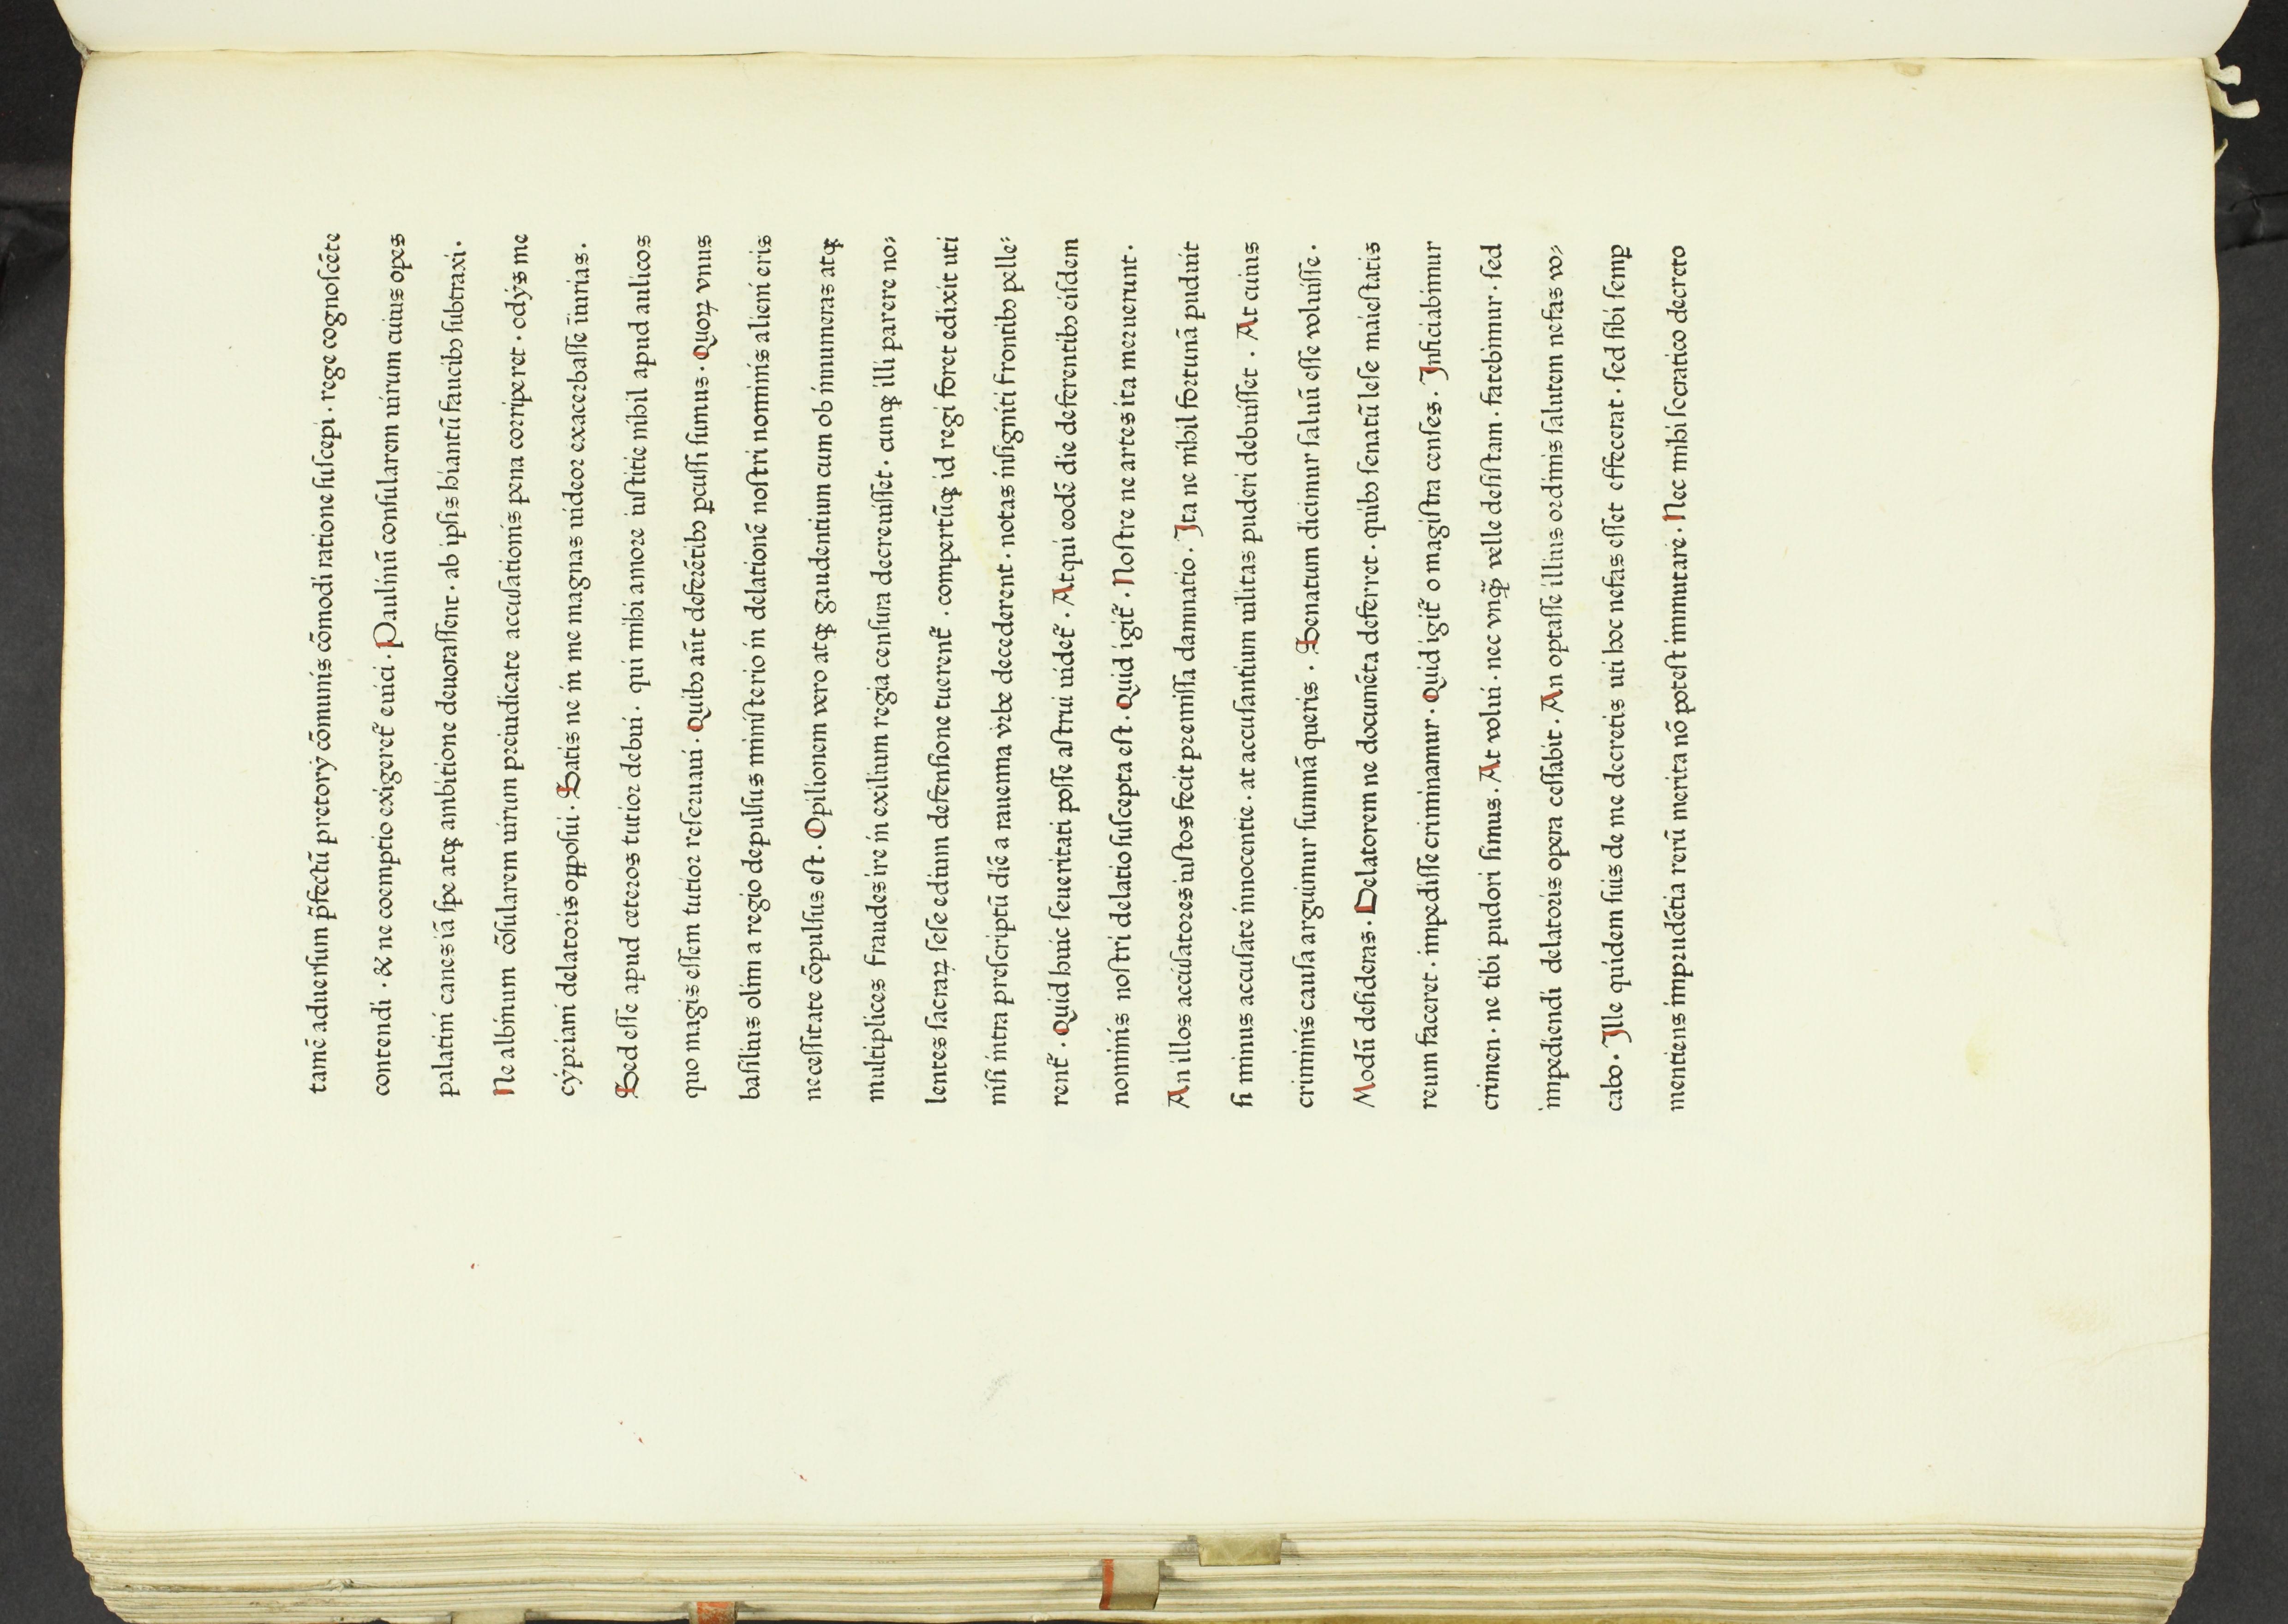 tamē aduerſum p̄fectū pretorẏ cōmunis cōmodi ratione ſuſcepi · rege cognoſcēte
contendi · & ne coemptio exigeret᷑ euici · Paulinū conſularem uirum cuius opes
palatini canes iā ſpe atqꝫ ambitione deuoraſſent · ab ipſis hiantū faucibꝫ ſubtraxi ·
Ne albinum cōſularem uirum preiudicate accuſationis pena corriperet · odẏs me
cẏpriani delatoris oppoſui · Satis ne in me magnas uideor exacerbaſſe īiurias ·
Sed eſſe apud ceteros tutior debui · qui mihi amore iuſtitie nihil apud aulicos
quo magis eſſem tutior reſeruaui · Quibꝫ aūt deferētibꝫ ꝑcuſſi ſumus · Quoꝝ vnus
baſilius olim a regio depulſus miniſterio in delationē noſtri nominis alieni eris
neceſſitate cōpulſus eſt · Opilionem vero atqꝫ gaudentium cum ob innumeras atqꝫ
multiplices fraudes ire in exilium regia cenſura decreuiſſet · cunqꝫ illi parere no⸗
lentes ſacraꝝ ſeſe edium defenſione tuerent᷑ · compertūqꝫ id regi foret edixit uti
niſi intra preſcriptū diē a rauenna vrbe decederent · notas inſigniti frontibꝫ pelle⸗
rent᷑ · Quid huic ſeueritati poſſe aſtrui uidet᷑ · Atqui eodē die deferentibꝫ eiſdem
nominis noſtri delatio ſuſcepta eſt · Quid igit᷑ · Noſtre ne artes ita meruerunt ·
An illos accuſatores iuſtos fecit premiſſa damnatio · Ita ne nihil fortunā puduit
ſi minus accuſate innocentie · at accuſantium uilitas puderi debuiſſet · At cuius
criminis cauſa arguimur ſummā queris · Senatum dicimur ſaluū eſſe voluiſſe ·
Modū deſideras · Delatorem ne documēta deferret · quibꝫ ſenatū leſe maieſtatis
reum faceret · impediſſe criminamur · Quid igit᷑ o magiſtra cenſes · Inficiabimur
crimen · ne tibi pudori ſimus · At volui · nec vnqꝫ̄ velle deſiſtam · fatebimur · ſed
impediendi delatoris opera ceſſabit · An optaſſe illius ordinis ſalutem nefas vo⸗
cabo · Ille quidem ſuis de me decretis uti hoc nefas eſſet effecerat · ſed ſibi ſemꝑ
mentiens imprudētia rerū merita nō poteſt immutare · Nec mihi ſocratico decreto